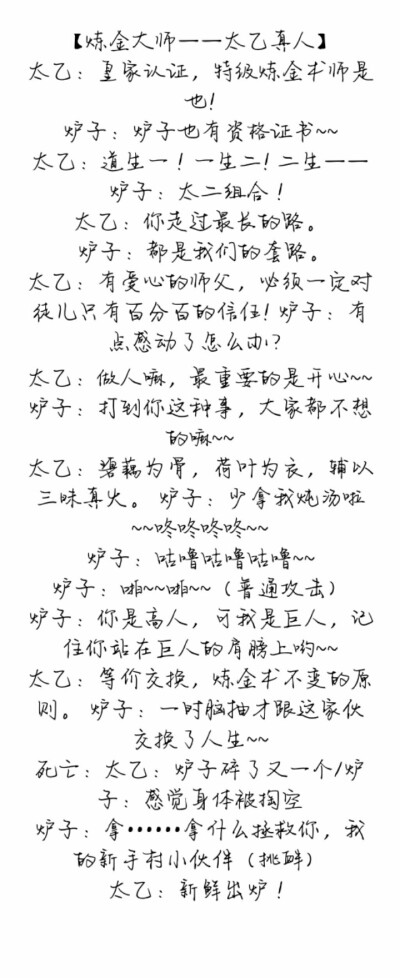 【炼金大师——太乙真人】
太乙：皇家认证，特级炼金术师是
也！
炉子：炉子也有资格证书~~
太乙：道生一！一生二！二生一一
炉子：太二组合！
太乙：你走过最长的路。
炉子：都是我们的套路。
太乙：有爱心的师父，必须一定对
徒儿只有百分百的信任！炉子：有
点感动了怎么办？
太乙：做人嘛，最重要的是开心~~
炉子：打到你这种事，大家都不想
的嘛~~
太乙：塘藕为骨，荷叶为衣，辅以
三昧真火。 炉子：少拿我炖汤啦
~~咚咚咚咚~~
炉子：咕噜咕噜咕噜~~
炉子：啪~~啪~~（普通攻击）
炉子：你是高人，可我是巨人，记
住你站在巨人的肩膀上哟~~
太乙：等价交换，炼金术不变的原
则。 炉子：一时脑抽才跟这家伙
交换了人生~~
死亡：太乙：炉子碎了又一个/炉
子：感觉身体被掏空
炉子：拿······拿什么拯救你，我
的新手村小伙伴（挑衅）
太乙：新鲜出炉！